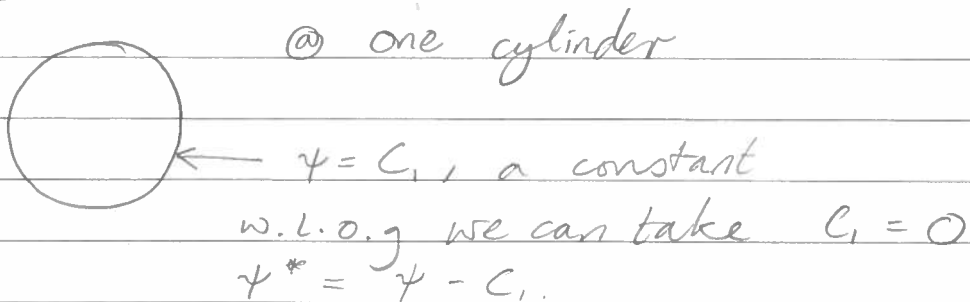 @ one cylinder
ψ = C₁, a constant
w.l.o.g we can take C₁ = 0
ψ* = ψ - C₁.